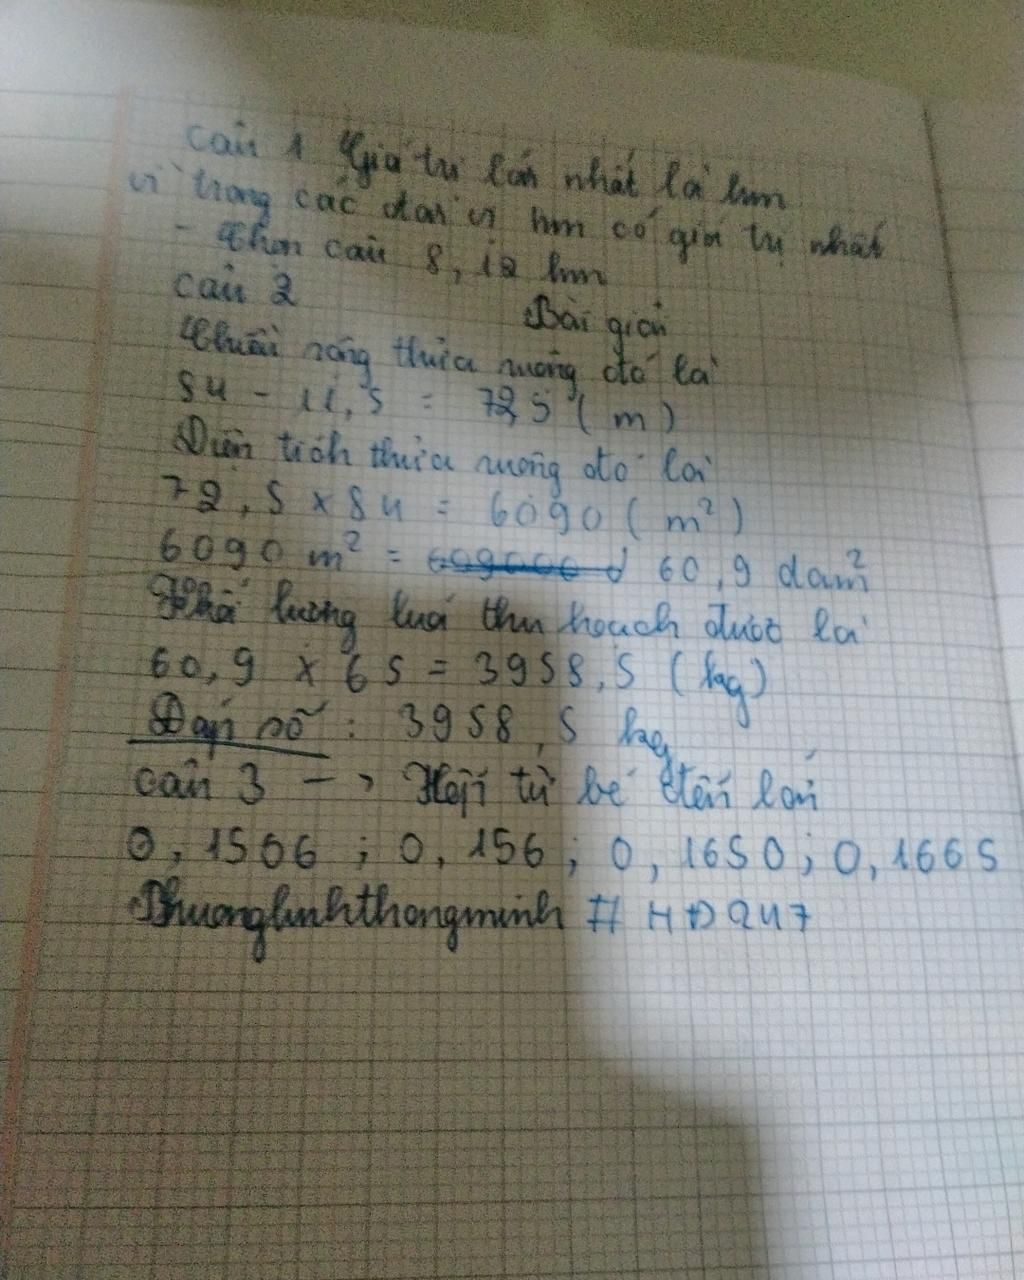 câu 1 Giá trị lớn nhất là hm
vì trong các đơn vị hm có giá trị nhất
- Chọn câu 8,12 hm
câu 2
Bài giải
Chiều rộng thửa ruộng đó là
84 - 11,5 = 72,5 (m)
Diện tích thửa ruộng đó là
72,5 x 84 = 6090 (m²)
6090 m² = 60,9 dam²
Khối lượng luá thu hoạch được là
60,9 x 65 = 3958,5 (kg)
Đáp số: 3958,5 kg
câu 3 - , Xếp từ bé đến lớn
0,1506 ; 0,156 ; 0,1650 ; 0,1665
Phuonglinhthongminh # HD247